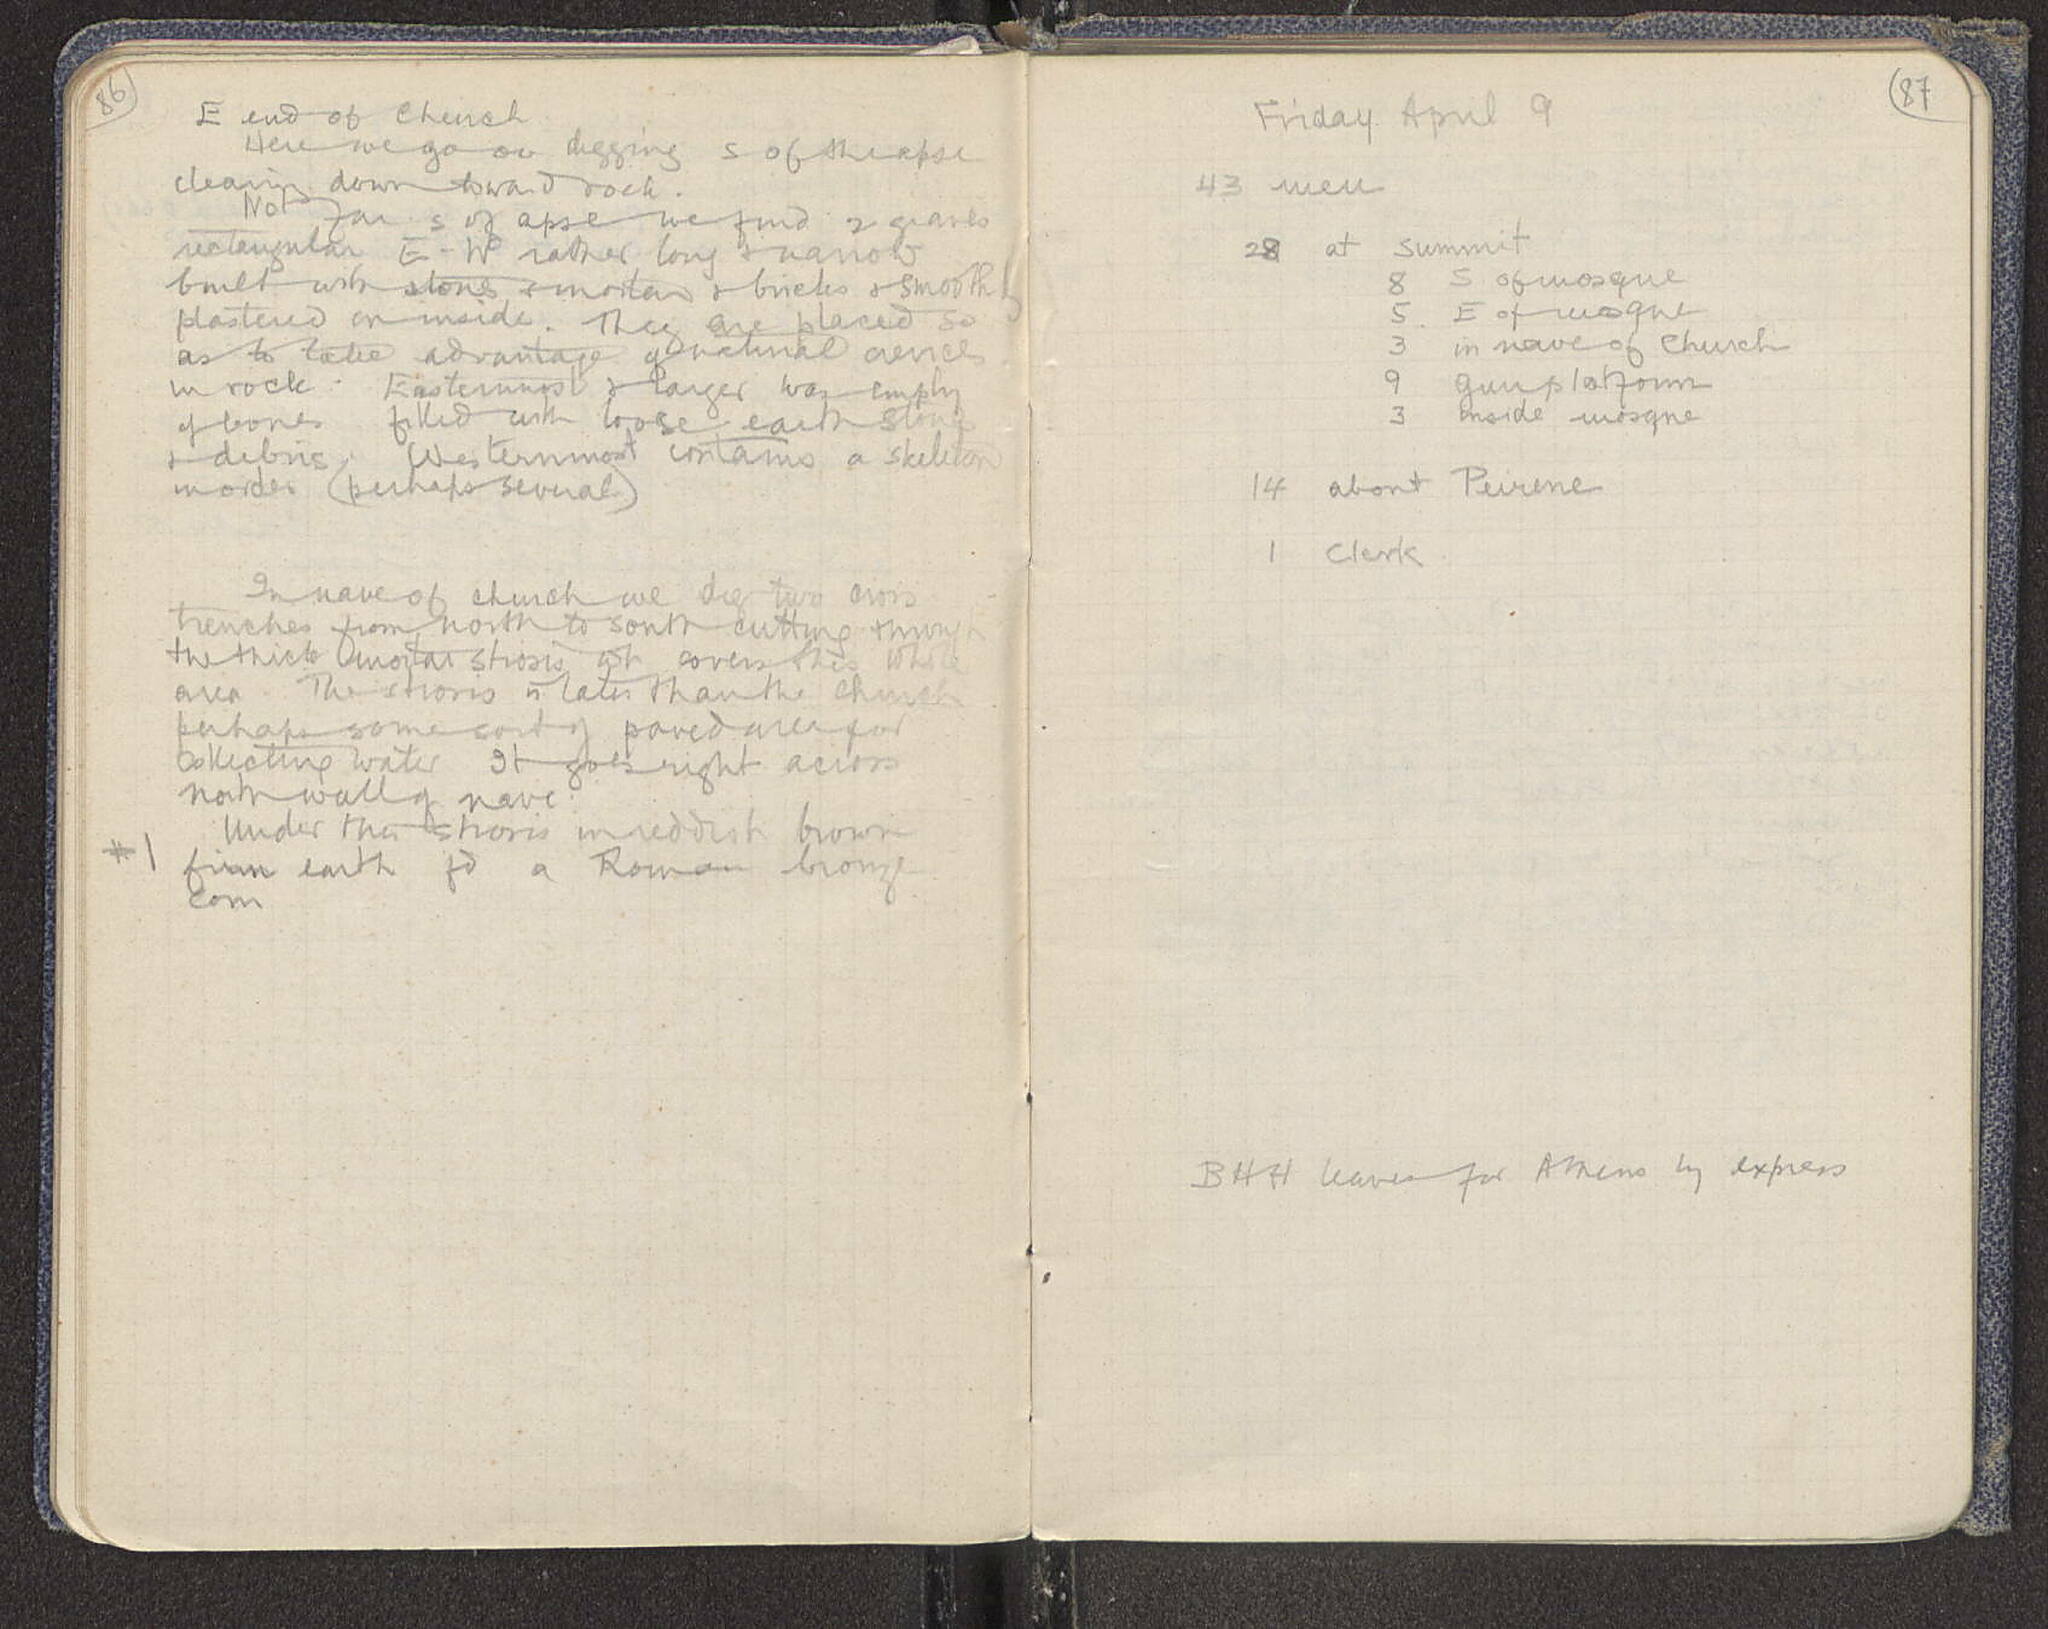 86
E end of Church
Here we go on digging S of the apse
clearing down toward rock.
Not far S of apse we find 2 graves
rectangular E-W rather long & narrow
built with stones & mortar & bricks & smoothly
plastered on inside. They are placed so
as to take advantage of natural crevices
in rock. Easternmost & larger was empty
of bones filled with loose earth stones
& debris. Westernmost contains a skeleton
in order (perhaps several)
In nave of church we dig two cross
trenches from north to south cutting through
the thick mortar strosis wh covers this whole
area. The strosis is later than the church
perhaps some sort of paved area for
collecting water It goes right across
north wall of nave.
Under this strosis in reddish brown
#1 firm earth fd a Roman bronze
coin
87
Friday April 9
43 men
28 at summit
8 S of mosque
5 E of mosque
3 in nave of Church
9 gun platform
3 inside mosque
14 about Peirene
1 Clerk
BHH leaves for Athens by express